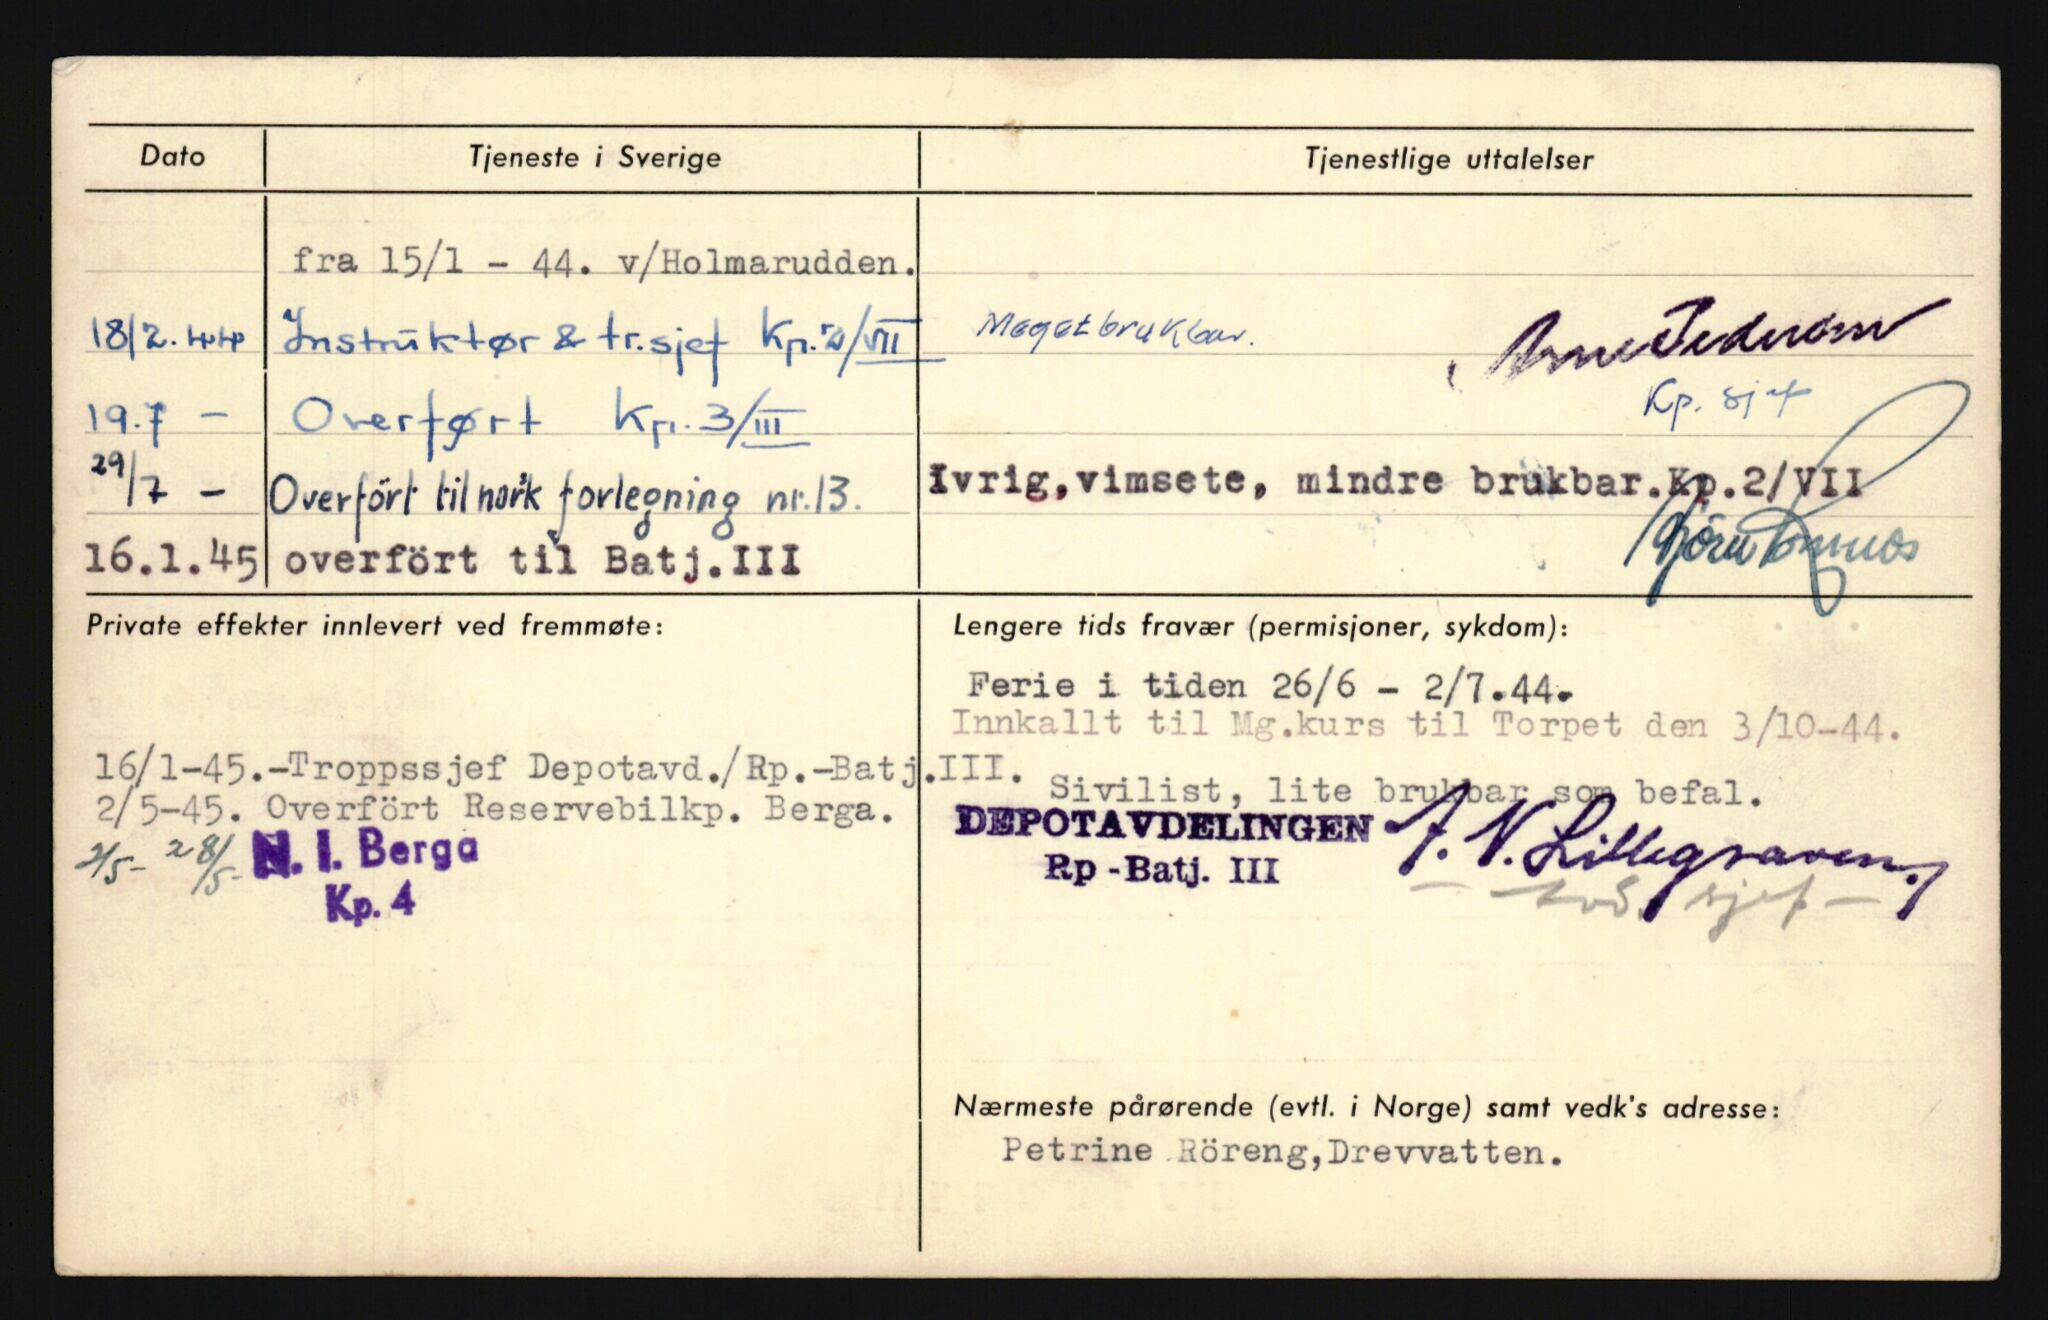 Dato Tjeneste i Sverige Tjenestlige uttalelser
fra 15/1 - 44. v/Holmarudden.
18/2. 44 Instruktør & tr.sjef Kp. 2/VII Meget brukbar. Arne Pedersen
Kp. sjef
19.7 - Overført Kp. 3/III
29/7 - Overført til norsk forlegning nr. 13. Ivrig, vimsete, mindre brukbar. Kp.2/VII
Bjørn
16.1.45 overfört til Batj.III
Private effekter innlevert ved fremmøte: Lengere tids fravær (permisjoner, sykdom):
Ferie i tiden 26/6 - 2/7.44.
Innkallt til Mg.kurs til Torpet den 3/10-44.
16/1-45.-Troppssjef Depotavd./Rp.-Batj.III.
Sivilist, lite brukbar som befal.
2/5-45. Overfört Reservebilkp. Berga.
DEPOTAVDELINGEN A. N. Lillegraven.
Rp-Batj. III - avd. sjef -
2/5- 28/5- N. I. Berga
Kp. 4
Nærmeste pårørende (evtl. i Norge) samt vedk's adresse:
Petrine Röreng,Drevvatten.